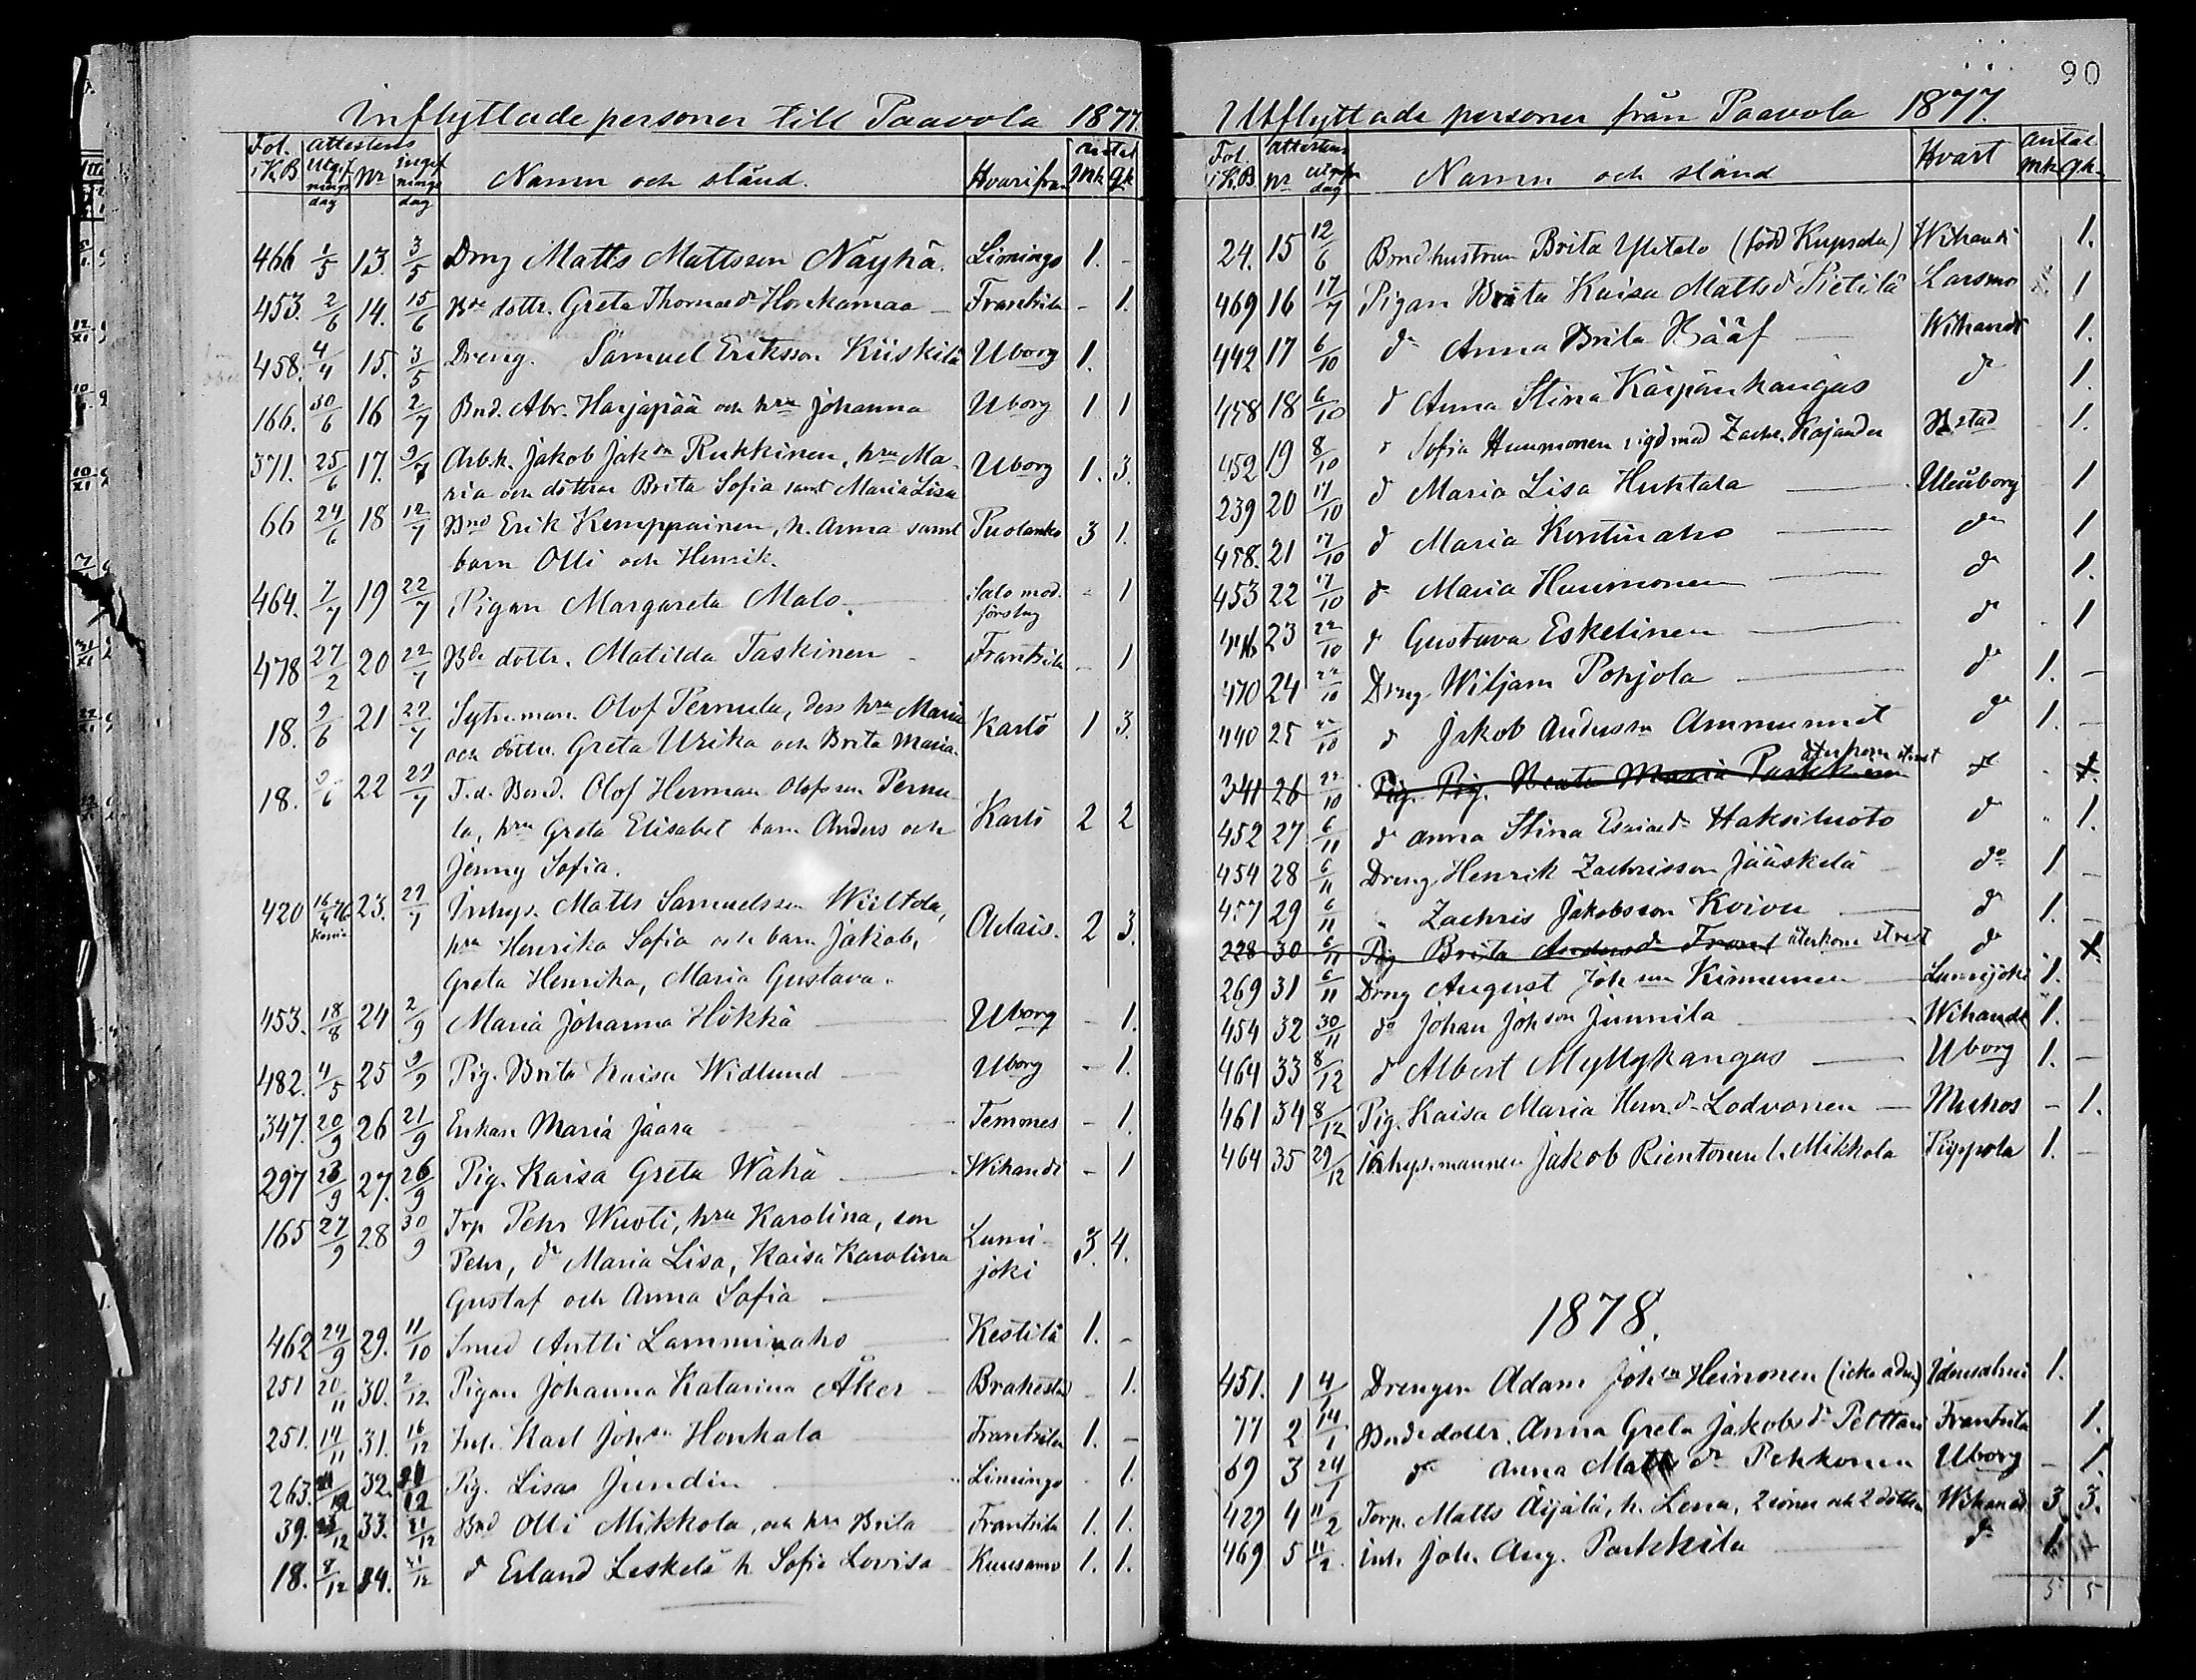 Inflyttade personer till Paavola 1877.
Fol. i K.B. attestens Utgifnings dag Nr ingifnings dag Namn och stånd. Hvarifrån antal mk qk
466 1/5 13. 3/5 Dreng Matts Mattsson Näyhä. Limingo 1. -
453. 2/6 14. 15/6 Bde dottr. Greta Thomasdr Honkamaa - Frantsila - 1.
458. 4/4 15. 3/5 Dreng. Samuel Eriksson Kiiskilä Uborg 1.
166. 30/6 16 2/7 Bnd. Abr. Harjapää och hru Johanna Uborg 1 1
371. 25/6 17. 9/7 Arb.k. Jakob Jaksn Rukkinen, hru Ma- Uborg 1. 3.
ria och döttrar Brita Sofia samt Maria Lisa
66 24/6 18 12/7 Bnd Erik Kemppainen, h. Anna samt Puolanko 3 1.
barn Olli och Henrik.
464. 7/7 19 22/7 Pigan Margareta Malo. Salo mod. - 1
förslag
478 27/2 20 22/7 Bde dottr. Matilda Taskinen - Frantsila - 1
18. 9/6 21 27/7 Sytn.man. Olof Pernula, dess hru Maria Karlö 1 3.
och döttr. Greta Ulrika och Brita Maria.
18. 9/6 22 29/7 F.d. Bond. Olof Herman Olofsson Pernu-
la, hru Greta Elisabet barn Anders och Karlö 2 2
Jenny Sofia.
420 16/4 76 23. 27/7 Inhys. Matts Samuelsson Wiiltola,
hru Henrika Sofia och barn Jakob, Aelais. 2 3.
Greta Henrika, Maria Gustava.
453. 18/8 24 2/9 Maria Johanna Hökkä Uborg - 1.
482. 4/5 25 9/9 Pig. Brita Kaisa Widlund Uborg - 1.
347. 20/9 26 21/9 Enkan Maria Jaara Temmes - 1.
297 23/9 27. 26/9 Pig. Kaisa Greta Wähä Wihandi - 1
165 27/9 28 30/9 Trp Pehr Wuoti, hru Karolina, son Lumi- 3. 4.
Pehr, dr Maria Lisa, Kaisa Karolina joki
Gustaf och Anna Sofia
462 24/9 29. 11/10 Smed Antti Lamminaho Kestilä 1. -
251 20/11 30. 2/12 Pigan Johanna Katarina Åker - Brahestad - 1.
251. 14/11 31. 16/12 Inh. Karl Johsn Honkala Frantsila 1. -
263. 32. Pig. Lisas Jundin Limingo - 1.
39. 33. 21/12 Bnd Olli Mikkola, och hru Brita Frantsila 1. 1.
18. 8/12 34. 21/12 d Erland Leskelä h Sofia Lovisa Kuusamo 1. 1.
90
Utflyttade personer från Paavola 1877.
Fol. i K.B. Attestens nr utgifn dag Namn och stånd Hvart antal mk. qk.
24. 15 12/6 Bondhustrun Brita Ylitalo (född Kupsala) Wihandi 1.
469 16 17/7 Pigan Brita Kaisa Mattsdr Pietilä Larsmo 1
442 17 6/10 do Anna Brita Bååf Wihandi 1.
458 18 6/10 d Anna Stina Kärpänkangas do 1.
452 19 8/10 d Sofia Huumonen vigd med Zachr. Kajander Bstad 1.
239 20 17/10 d Maria Lisa Huhtala Uleåborg 1
458. 21 17/10 d Maria Kontinaho do 1
453 22 17/10 do Maria Huumonen do 1.
23 22/10 d Gustava Eskelinen do 1
470 24 22/10 Dreng Wiljam Pohjola do 1. -
440 25 22/10 d Jakob Andersson Ammunnit do 1. -
341 26 22/10 Pig. Pig. Beata Maria Parkkinen återkom strax do - 1.
452 27 6/11 d Anna Stina Esaiasdr Haksiluoto do 1.
454 28 6/11 Dreng Henrik Zachrisson Jääskelä do 1 -
457 29 6/11 " Zachris Jakobsson Koivu do 1. -
228 30 6/11 Pig Brita Andersdr Frant återkom strax do 1.
269 31 6/11 Dreng August Johsson Kinnunen Lumijoki 1. -
454 32 30/11 do Johan Johsson Junnila Wihandi 1. -
464 33 8/12 d Albert Myllykangas Uborg 1. -
461 34 8/12 Pig. Kaisa Maria Henrdr Lodvonen - Muhos - 1.
464 35 29/12 Inhysmannen Jakob Rientonen l. Mikkola Pippola 1. -
1878.
451. 1 4/1 Drengen Adam Johsn Heinonen (icke adm.) Idensalmi 1.
77 2 14/1 Bnde dottr. Anna Greta Jakobsdr Pelttari Frantsila 1.
69 3 24/1 do Anna Mattsdr Pehkonen Uborg - 1.
427 4 11/2 Torp. Matts Äijälä, h. Lena, 2 söner och 2 döttrar Wihandi 3. 3.
469 5 11/2. Inh. Joh. Aug. Parkkila do 1
5 5